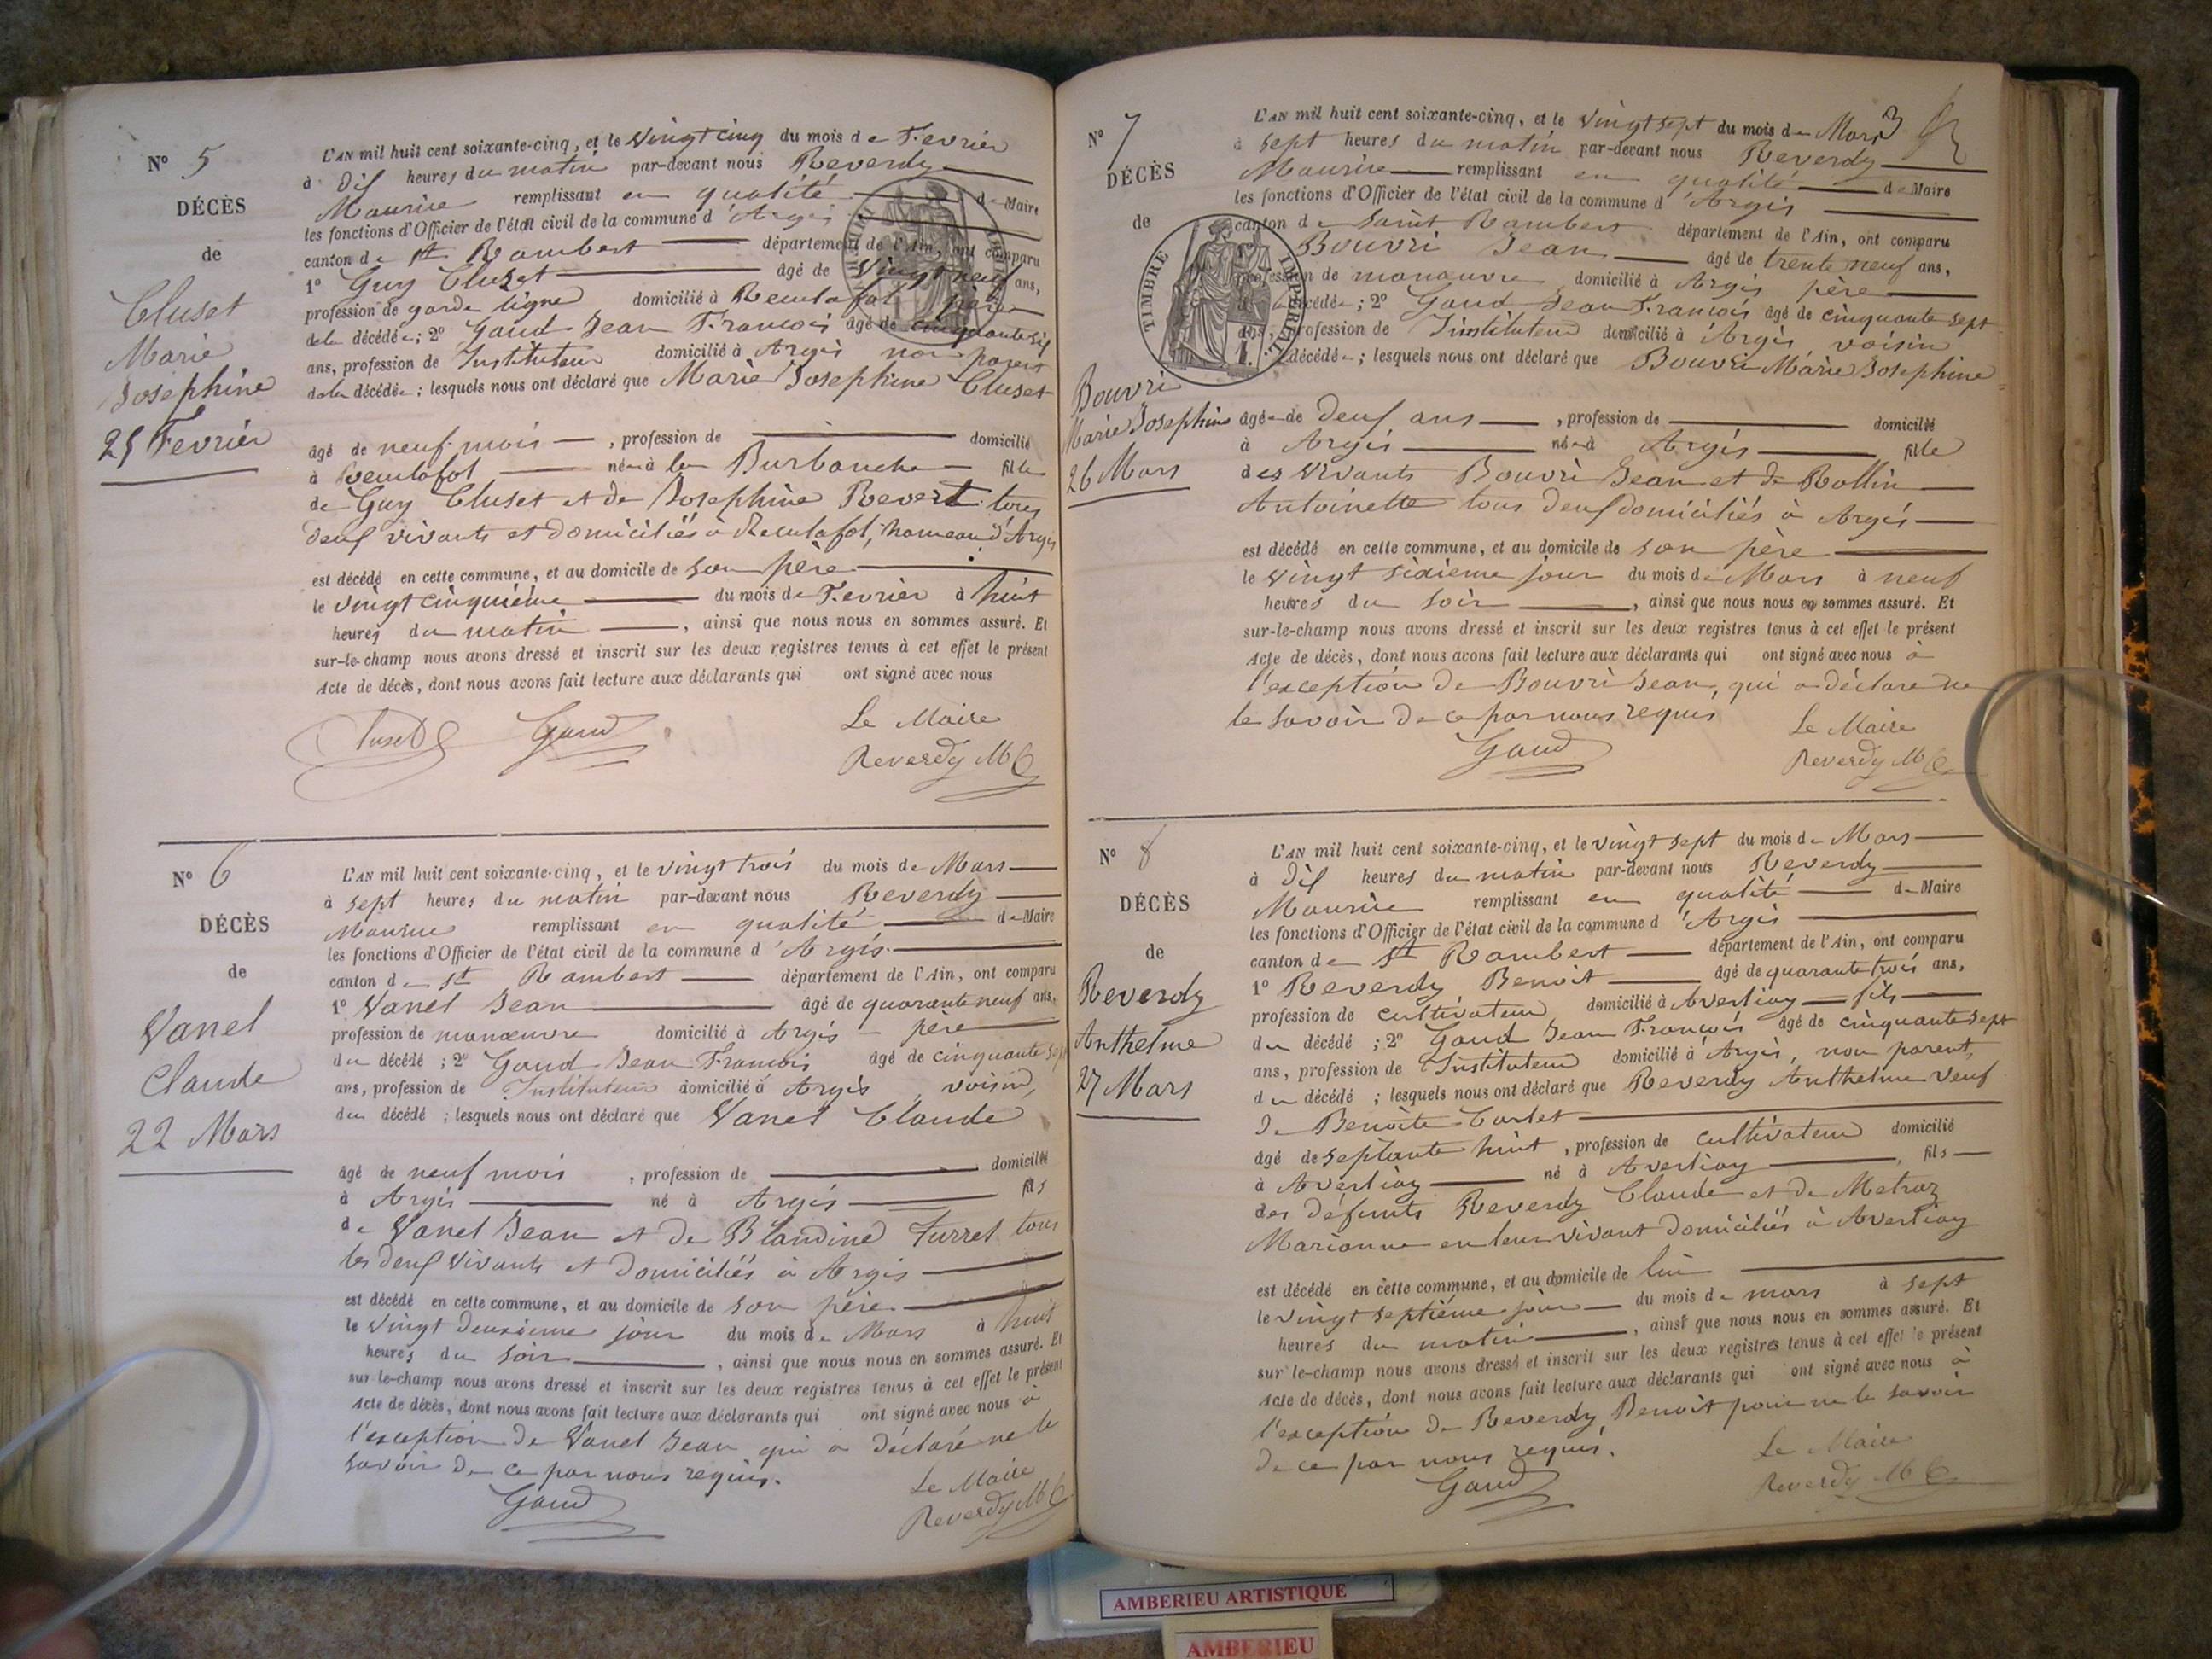 N° 5
DÉCÈS
de
Cluset
Marie
Josephine
25 Fevrier
L'AN mil huit cent soixante-cinq, et le vingt cinq du mois de Fevrier
à dix heures du matin par-devant nous Reverdy
Maurice remplissant en qualité de Maire
les fonctions d'Officier de l'état civil de la commune d'Argis
canton de St Rambert département de l'Ain, ont comparu
1° Guy Cluset âgé de vingt neuf ans,
profession de garde ligne domicilié à Reculafol père
de la décédée; 2° Gaud Jean François âgé de cinquante six
ans, profession de Instituteur domicilié à Argis non parent
de la décédée; lesquels nous ont déclaré que Marie Josephine Cluset
âgé de neuf mois, profession de domicilié
à Reculafol née à la Burbanche fille
de Guy Cluset et de Josephine Revert tous
deux vivants et domiciliés à Reculafol, hameau d'Argis
est décédé en cette commune, et au domicile de son père
le vingt cinquième du mois de Fevrier à huit
heures du matin, ainsi que nous nous en sommes assuré. Et
sur-le-champ nous avons dressé et inscrit sur les deux registres tenus à cet effet le présent
Acte de décès, dont nous avons fait lecture aux déclarants qui ont signé avec nous
Cluset Gaud
Le Maire
Reverdy M
N° 6
DÉCÈS
de
Vanel
Claude
22 Mars
L'AN mil huit cent soixante-cinq, et le vingt trois du mois de Mars
à sept heures du matin par-devant nous Reverdy
Maurice remplissant en qualité de Maire
les fonctions d'Officier de l'état civil de la commune d'Argis
canton de St Rambert département de l'Ain, ont comparu
1° Vanel Jean âgé de quarante neuf ans,
profession de manœuvre domicilié à Argis père
du décédé; 2° Gaud Jean Francois âgé de cinquante sept
ans, profession de Instituteur domicilié à Argis, voisin,
du décédé; lesquels nous ont déclaré que Vanel Claude
âgé de neuf mois, profession de domicilié
à Argis né à Argis fils
de Vanel Jean et de Blandine Furret tous
les deux vivants et domiciliés à Argis
est décédé en cette commune, et au domicile de son père
le vingt deuxième jour du mois de Mars à huit
heures du soir, ainsi que nous nous en sommes assuré. Et
sur-le-champ nous avons dressé et inscrit sur les deux registres tenus à cet effet le présent
Acte de décès, dont nous avons fait lecture aux déclarants qui ont signé avec nous à
l'exception de Vanel Jean qui a déclaré ne le
savoir de ce par nous requis.
Gaud
Le Maire
Reverdy M
3
N° 7
DÉCÈS
de
Bouvri
Marie Josephine
26 Mars
TIMBRE IMPÉRIAL
L'AN mil huit cent soixante-cinq, et le vingt sept du mois de Mars
à sept heures du matin par-devant nous Reverdy
Maurice remplissant en qualité de Maire
les fonctions d'Officier de l'état civil de la commune d'Argis
canton de Saint Rambert département de l'Ain, ont comparu
Bouvri Jean âgé de trente neuf ans,
profession de manœuvre domicilié à Argis père
décédée; 2° Gaud Jean François âgé de cinquante sept
ans, profession de Instituteur domicilié à Argis voisin
décédée; lesquels nous ont déclaré que Bouvri Marie Josephine
âgée de deux ans, profession de domicilié
à Argis née à Argis fille
des vivants Bouvri Jean et de Rollin
Antoinette tous deux domiciliés à Argis
est décédé en cette commune, et au domicile de son père
le vingt sixieme jour du mois de Mars à neuf
heures du soir, ainsi que nous nous en sommes assuré. Et
sur-le-champ nous avons dressé et inscrit sur les deux registres tenus à cet effet le présent
Acte de décès, dont nous avons fait lecture aux déclarants qui ont signé avec nous à
l'exception de Bouvri Jean, qui a déclaré ne
le savoir de ce par nous requis
Gaud
Le Maire
Reverdy M
N° 8
DÉCÈS
de
Reverdy
Anthelme
27 Mars
L'AN mil huit cent soixante-cinq, et le vingt sept du mois de Mars
à dix heures du matin par-devant nous Reverdy
Maurice remplissant en qualité de Maire
les fonctions d'Officier de l'état civil de la commune d'Argis
canton de St Rambert département de l'Ain, ont comparu
1° Reverdy Benoit âgé de quarante trois ans,
profession de cultivateur domicilié à Averliay fils
du décédé; 2° Gaud Jean François âgé de cinquante sept
ans, profession de Instituteur domicilié à Argis, non parent,
du décédé; lesquels nous ont déclaré que Reverdy Anthelme veuf
de Benoite Carlet
âgé de septante huit, profession de cultivateur domicilié
à Averliay né à Averliay, fils
des défunts Reverdy Claude et de Metraz
Marianne en leur vivant domiciliés à Averliay
est décédé en cette commune, et au domicile de lui
le vingt septième jour du mois de mars à sept
heures du matin, ainsi que nous nous en sommes assuré. Et
sur-le-champ nous avons dressé et inscrit sur les deux registres tenus à cet effet le présent
Acte de décès, dont nous avons fait lecture aux déclarants qui ont signé avec nous à
l'exception de Reverdy Benoit pour ne le savoir
de ce par nous requis.
Gaud
Le Maire
Reverdy M
AMBERIEU ARTISTIQUE
AMBERIEU